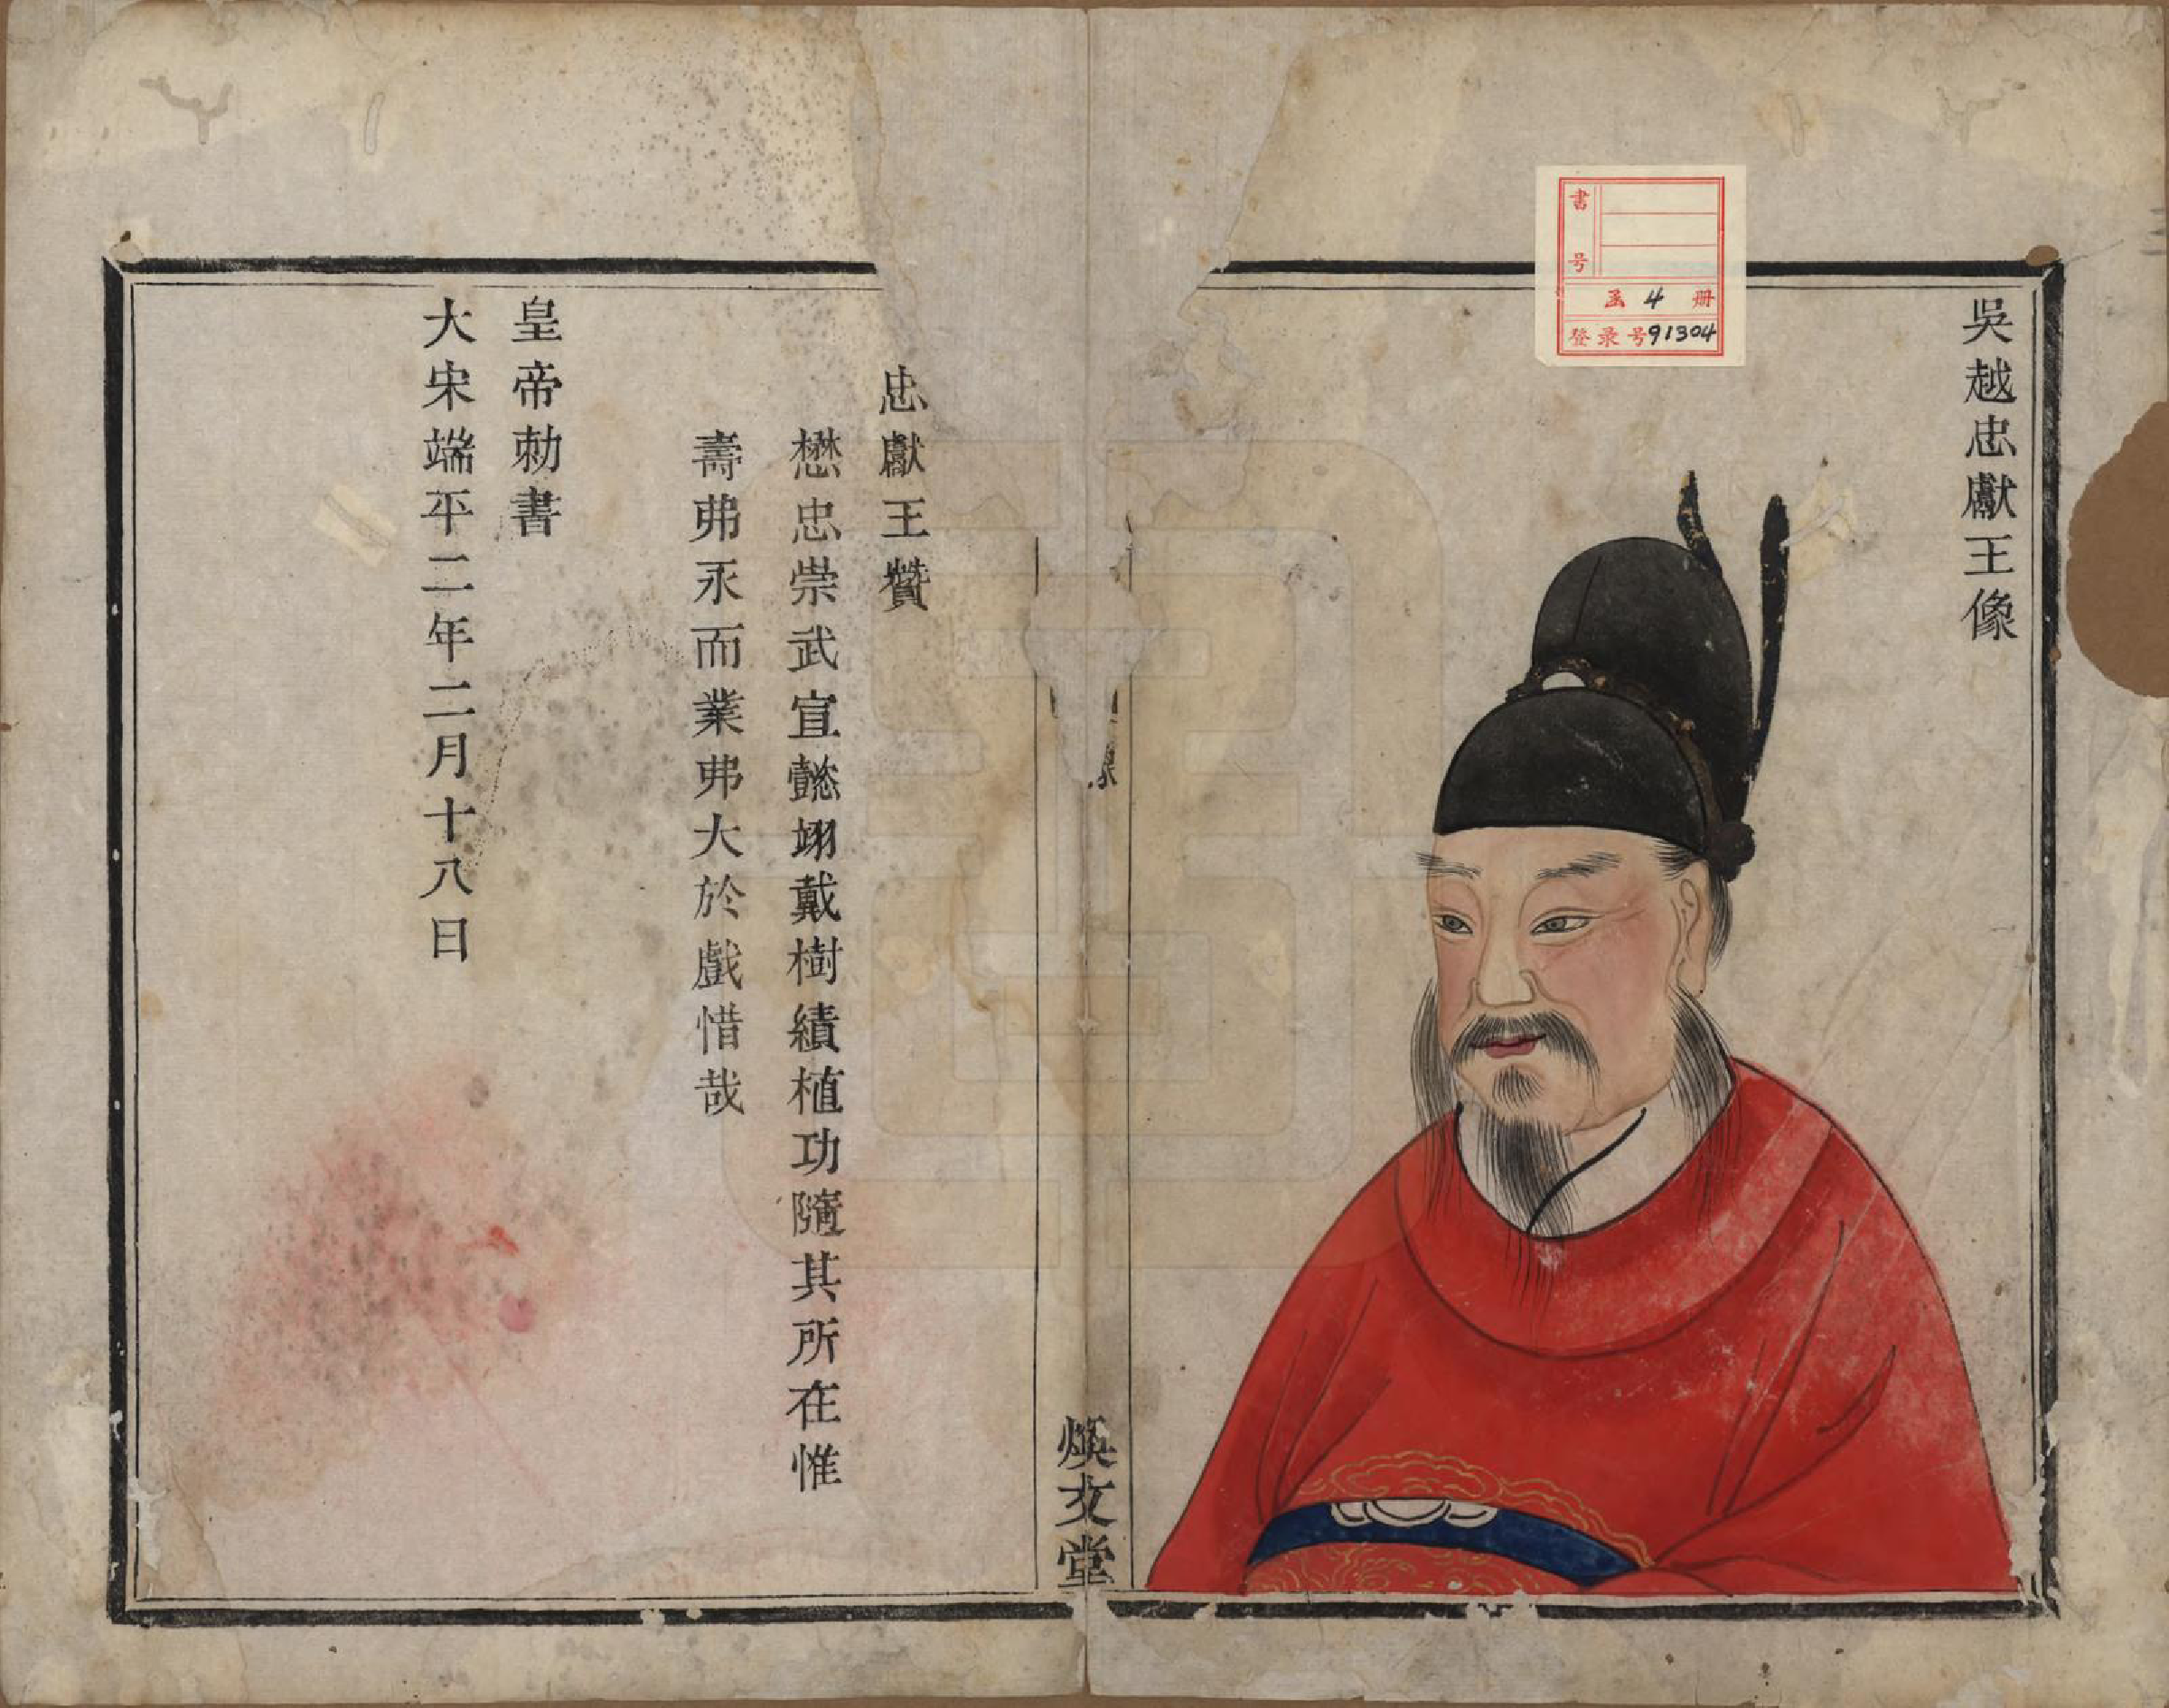 吳越忠獻王像
書号
函 4 册
登录号91304
像
煥文堂
忠獻王贊
懋忠崇武宣懿翊戴樹績植功隨其所在惟
壽弗永而業弗大於戲惜哉
皇帝勅書
大宋端平二年二月十八日